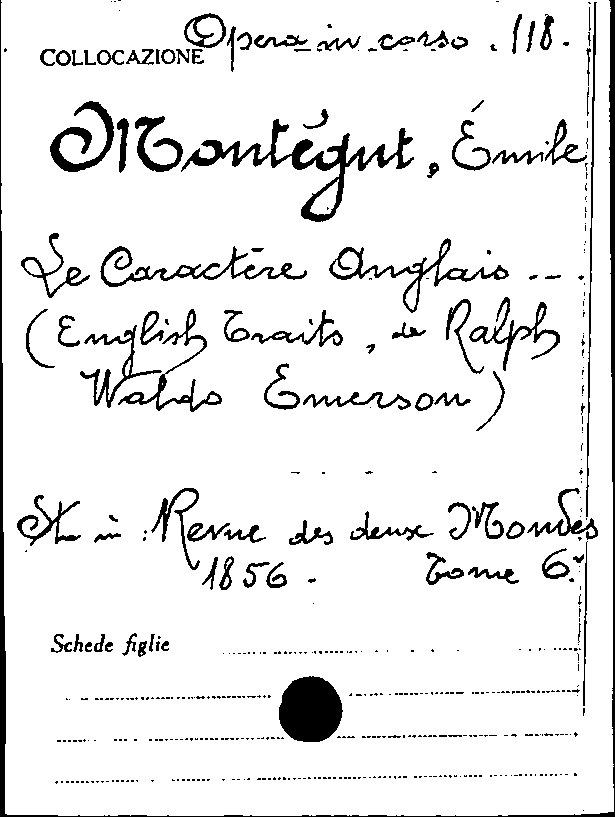 COLLOCAZIONE Opera in corso . 118.
Montégut, Émile
Le Caractère Anglais ---.
(English Traits, de Ralph
Waldo Emerson)
Sta in : Revue des deux Mondes
1856 - Tome 6.º
Schede figlie